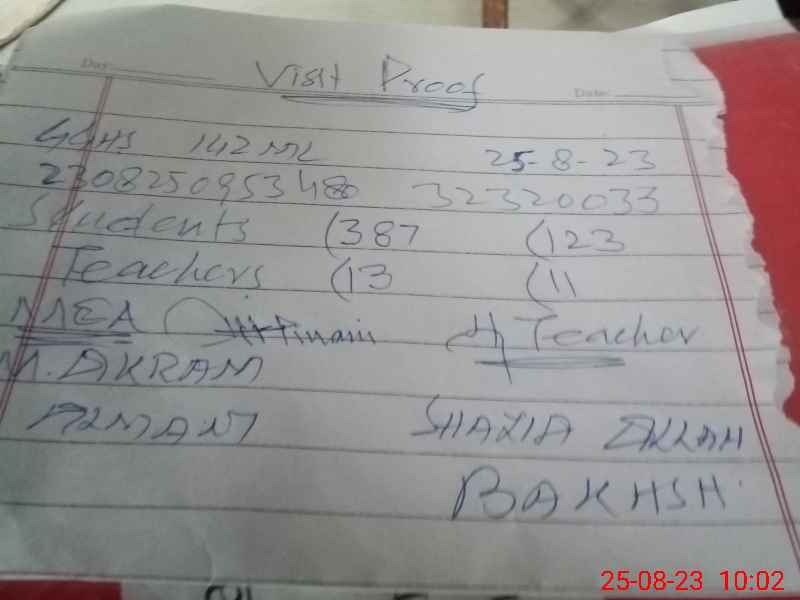 Date: Date:
Visit Proof
GGHS 142 ML 25-8-23
2308250953480 32320033
Students (387 (123
Teachers (13 (11
MEA Teacher
M. AKRAM
SHAZIA ALLAH
BAKHSH
25-08-23 10:02